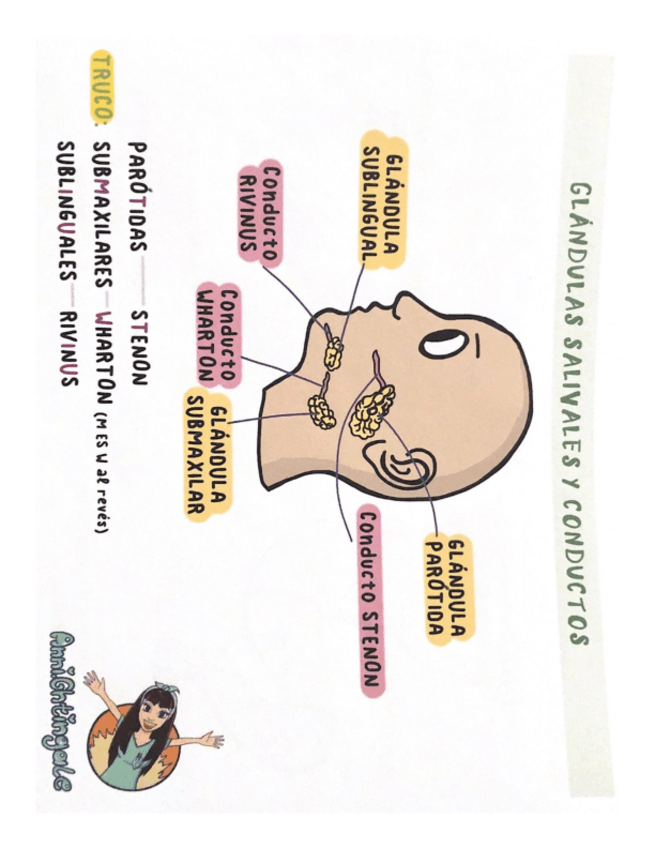 GLÁNDULAS SALIVALES Y CONDUCTOS
GLÁNDULA
SUBLINGUAL
Conducto
RIVINUS
Conducto
WHARTON
GLÁNDULA
SUBMAXILAR
GLÁNDULA
PARÓTIDA
Conducto STENON
TRUCO:
PARÓTIDAS — STENON
SUBMAXILARES — WHARTON (M ES W al revés)
SUBLINGUALES — RIVINUS
AnniGhtingale